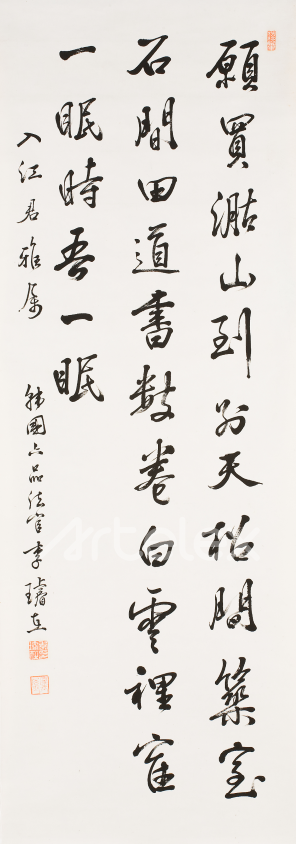 願買湖山到別天松間築室
石間田道書數卷白雲裡寉
一眠時吾一眠
入江君雅属
韓國六品法官李璿在